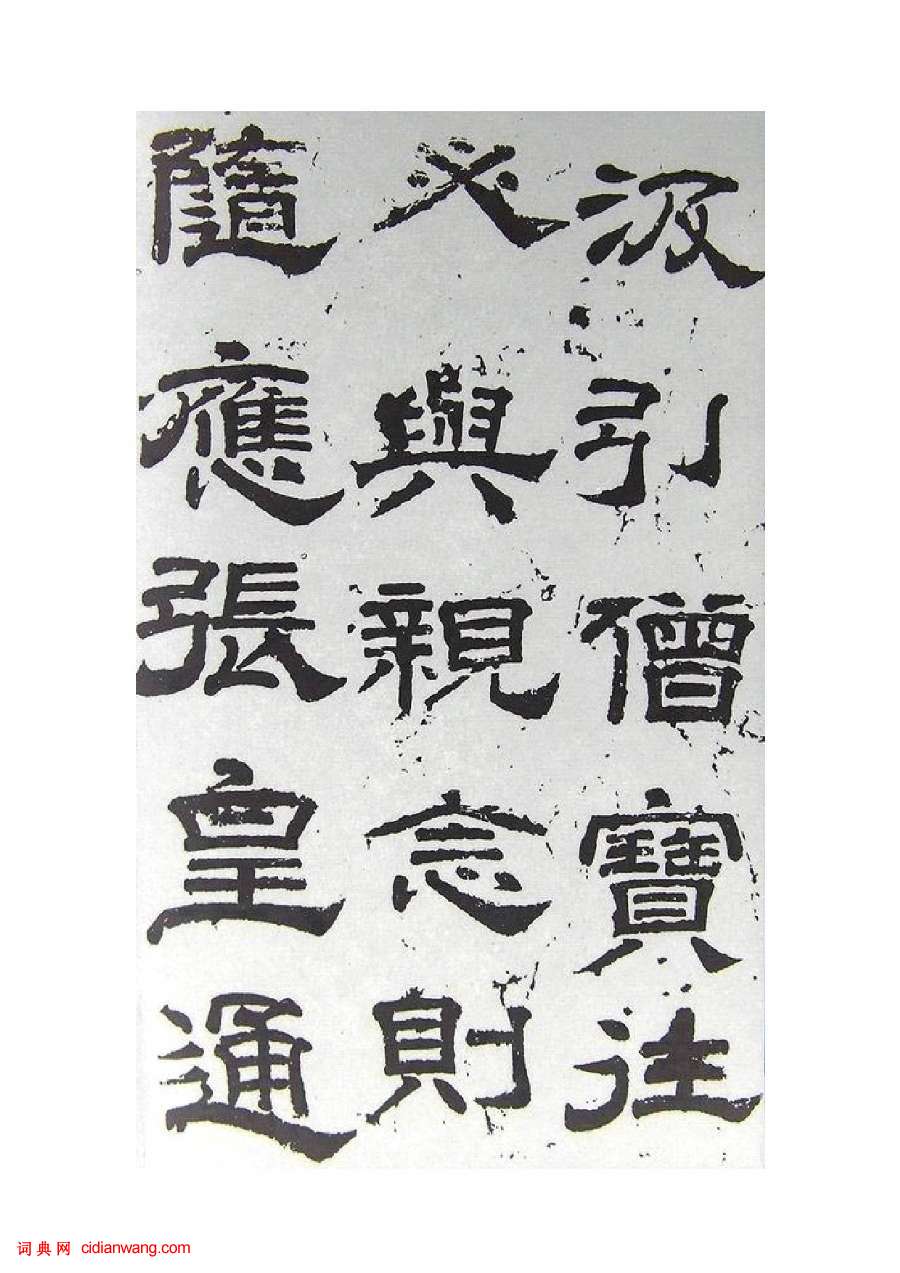 汲引僧寶往
必與親念則
隨應張皇通
词典网 cidianwang.com